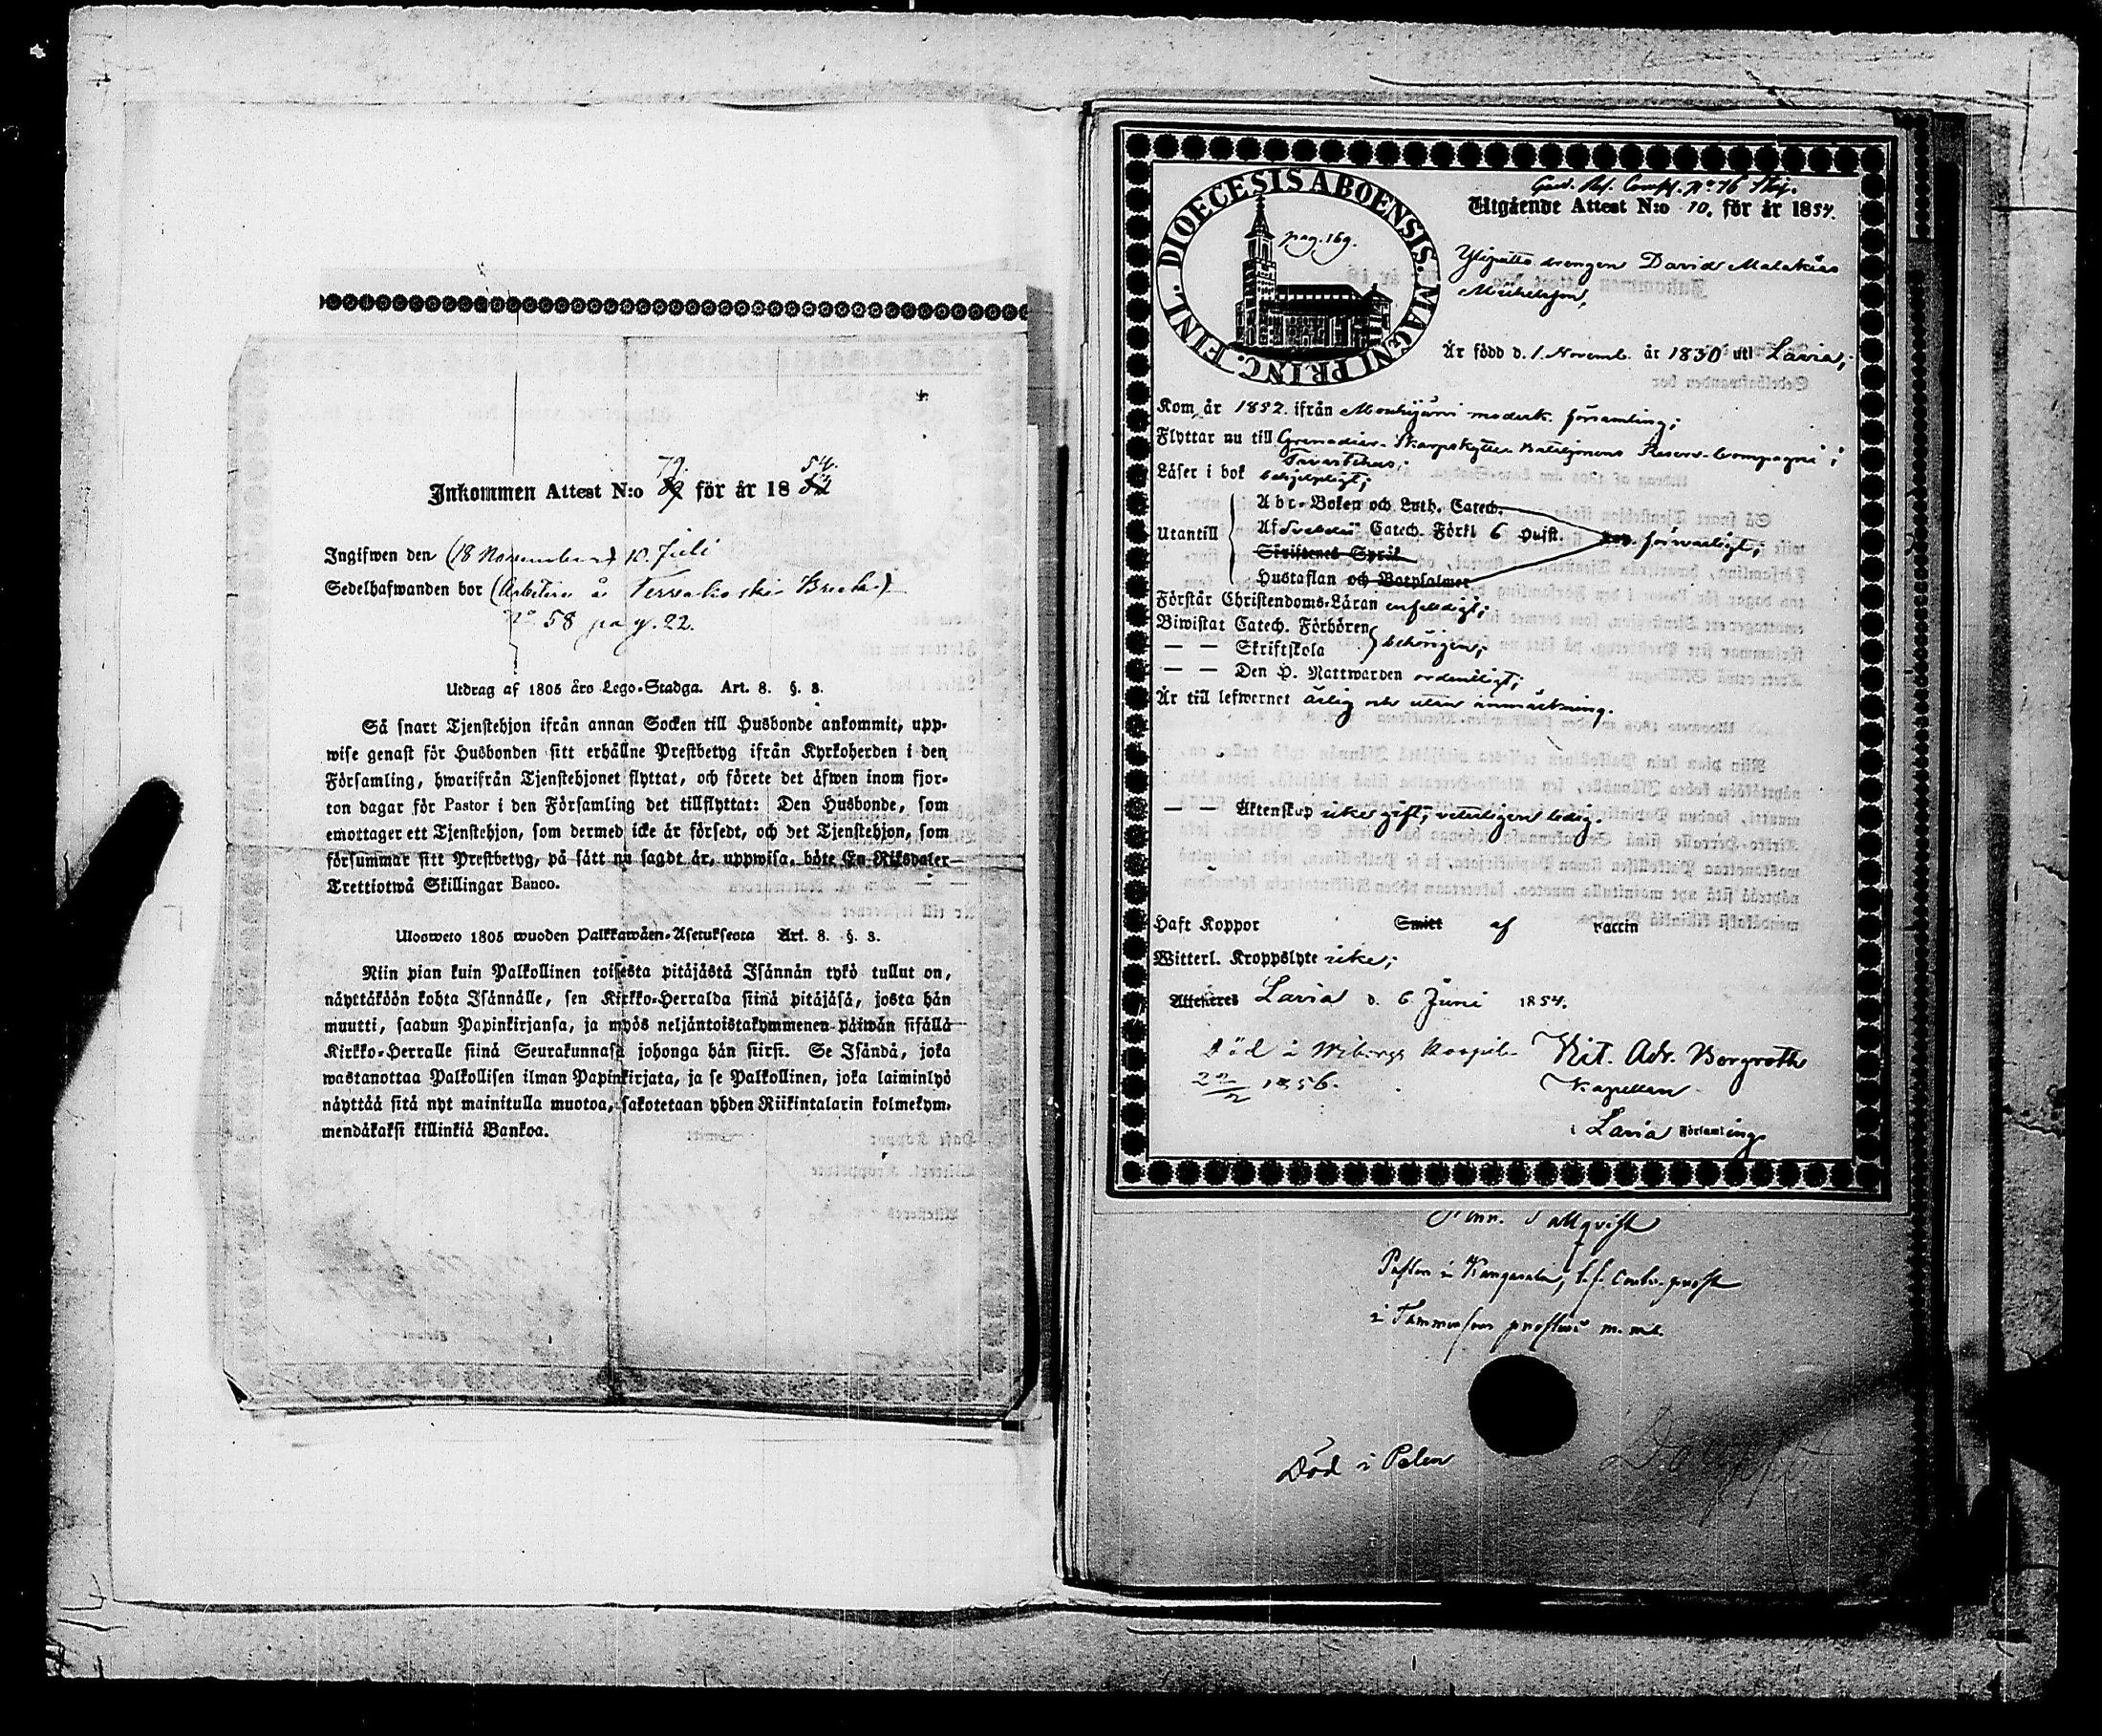 Inkommen Attest N:o 79 för år 1854.
Ingifwen den (18 November) 10. Juli
Sedelhafwanden bor (Arbetare å Bruk)
N:o 58 pag. 22.
Utdrag af 1805 års Lego-Stadga. Art. 8. §. 3.
Så snart Tjenstehjon ifrån annan Socken till Husbonde ankommit, upp-
wise genast för Husbonden sitt erhållne Prestbetyg ifrån Kyrkoherden i den
Församling, hwarifrån Tjenstehjonet flyttat, och förete det äfwen inom fjor-
ton dagar för Pastor i den Församling det tillflyttat: Den Husbonde, som
emottager ett Tjenstehjon, som dermed icke är försedt, och det Tjenstehjon, som
försummar sitt Prestbetyg, på sätt nu sagdt är, uppwisa, böte En Riksdaler
Trettiotwå Skillingar Banco.
Ulosweto 1805 wuoden Palkkawäen-Asetuksesta Art. 8. §. 3.
Niin pian kuin Palkollinen toisesta pitäjästä Isännän tykö tullut on,
näyttäköön kohta Isännälle, sen Kirkko-Herralda siinä pitäjäsä, josta hän
muutti, saadun Papinkirjansa, ja myös neljäntoistakymmenen päiwän sisällä
Kirkko-Herralle siinä Seurakunnasa johonga hän siirsi. Se Isändä, joka
wastanottaa Palkollisen ilman Papinkirjata, ja se Palkollinen, joka laiminlyö
näyttää sitä nyt mainitulla muotoa, sakotetaan yhden Riikintalarin kolmekym-
mendäkaksi killinkiä Bankoa.
DIOECESIS ABOENSIS. MAGNI PRINC. FINL.
pag. 169.
Utgående Attest N:o 10. för år 1854.
drengen David Malakias
Michelsson,
Är född d. 1. Novemb. år 1830 uti Lavia;
Kom år 1852. ifrån Mouhijärvi moderk. församling;
Flyttar nu till Grenadier-Skarpskytte-Bataljonens Reserv-Compagni i
Tavastehus;
Läser i bok behjelpligt;
Utantill
Abc-Boken och Luth. Catech.
Af Svebelii Catech. Förkl 6 Hufst. försvarligt;
Skriftenes Språk
Hustaflan och Botpsalmer
Förstår Christendoms-Läran enfaldigt;
Biwistat Catech. Förhören
— — Skriftskola behörigen;
— — Den H. Nattwarden ordentligt;
Är till lefwernet ärlig och utan anmärkning.
— — Äktenskap icke gift; veterligen ledig.
Haft Koppor Smitt af vaccin
Witterl. Kroppslyte icke;
Attesteres Lavia d. 6 Juni 1854.
Död i Wiborgs Hospital
1856.
Nit. Adr. Borgroth
Kapellan
i Lavia Församling
Pastor i Kangasala, t.f. Contr. prost
i Tammerfors prosteri m. m.
Död i Polen